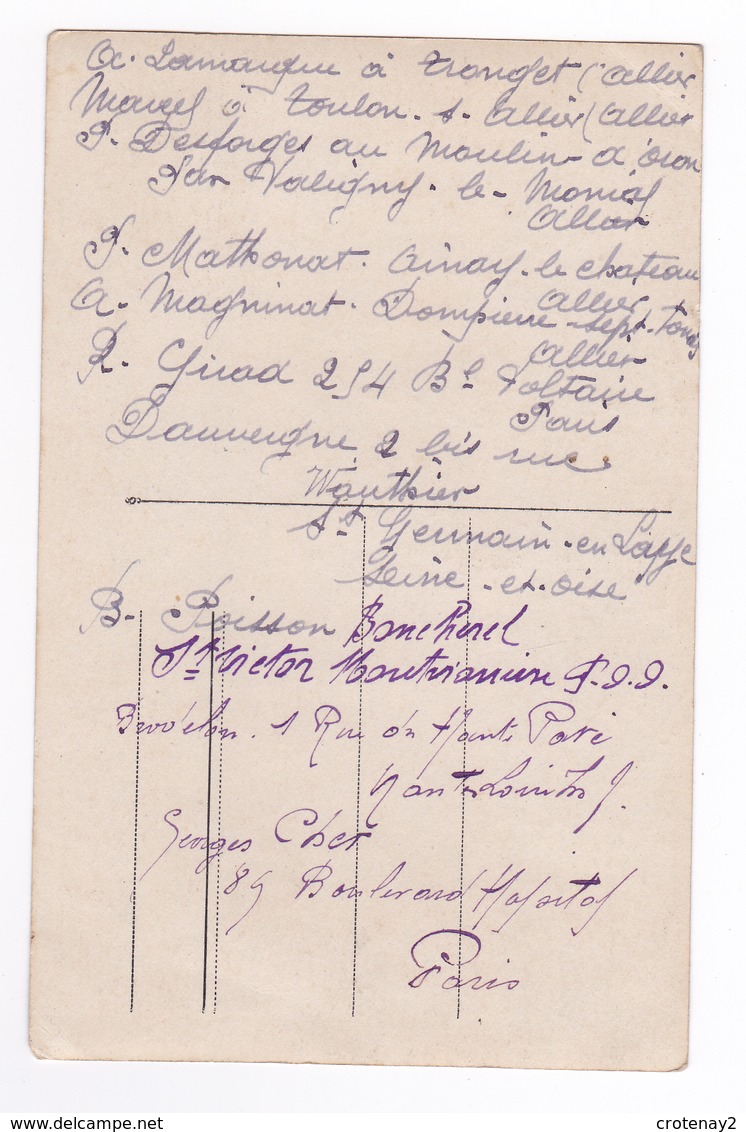 A. Lamaigue à Tronget (Allier
Marcel à Toulon-s-Allier (Allier
P. Desforges au Moulin d'
Par Valigny-le-Monial
Allier
P. Mathonat. Ainay-le chateau
Allier
A. Magninat. Dompierre-sept-Fons
Allier
R. Girod 254 Bd Voltaire
Paris
Dauvergne 2 bis rue
Wauthier
St Germain-en Laye
Seine-et-oise
B. Poisson
St Victor P.D.D.
1 Rue du Haut Pavé
Georges
89 Boulevard Hopital
Paris
crotenay2